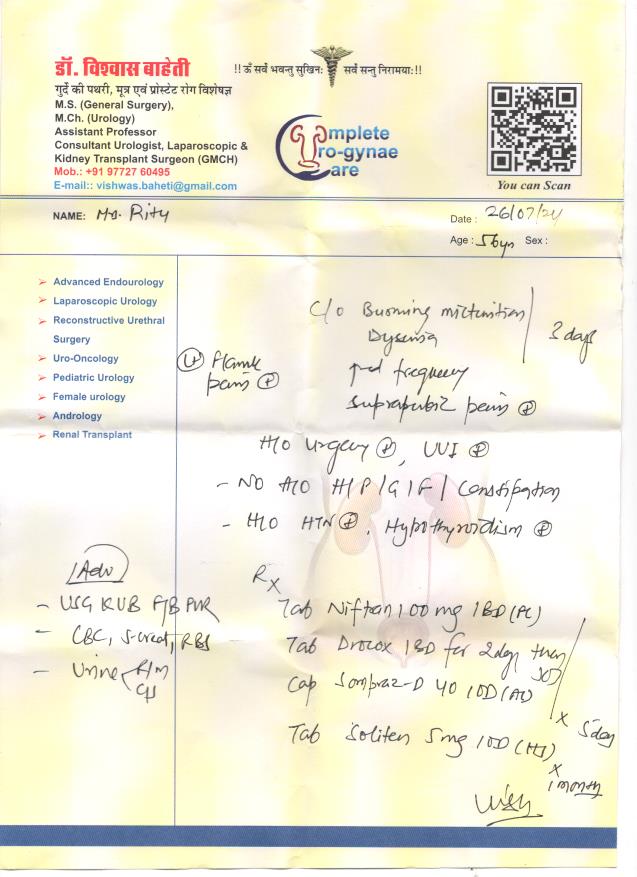 डॉ. विश्वास बाहेती
गुर्दे की पथरी, मूत्र एवं प्रोस्टेट रोग विशेषज्ञ
M.S. (General Surgery),
M.Ch. (Urology)
Assistant Professor
Consultant Urologist, Laparoscopic &
Kidney Transplant Surgeon (GMCH)
Mob.: +91 97727 60495
E-mail:: vishwas.baheti@gmail.com
!! ॐ सर्वे भवन्तु सुखिनः सर्वे सन्तु निरामयाः !!
Complete
Uro-gynae
Care
You can Scan
NAME: Ms. Rity
Date : 26/07/24
Age : 56yrs Sex :
Advanced Endourology
Laparoscopic Urology
Reconstructive Urethral
Surgery
Uro-Oncology
Pediatric Urology
Female urology
Andrology
Renal Transplant
C/o Burning micturition
Dysuria
3 days
frequency
suprapubic pain ⊕
Flank
pain ⊕
H/O Urgency ⊕, UUI ⊕
- NO H/O H/P/G/F/Constipation
- H/O HTN ⊕, Hypothyroidism ⊕
Adv
- USG KUB F/B PVR
- CBC, S.creat, RBS
- Urine R/M
C/S
Rx
Tab Niftran 100 mg 1BD (PC)
Tab 1BD for 2 days then
SOS
Cap Sompraz-D 40 1OD (AC)
x 5 days
Tab Soliten 5mg 1OD (HS)
x 1 month